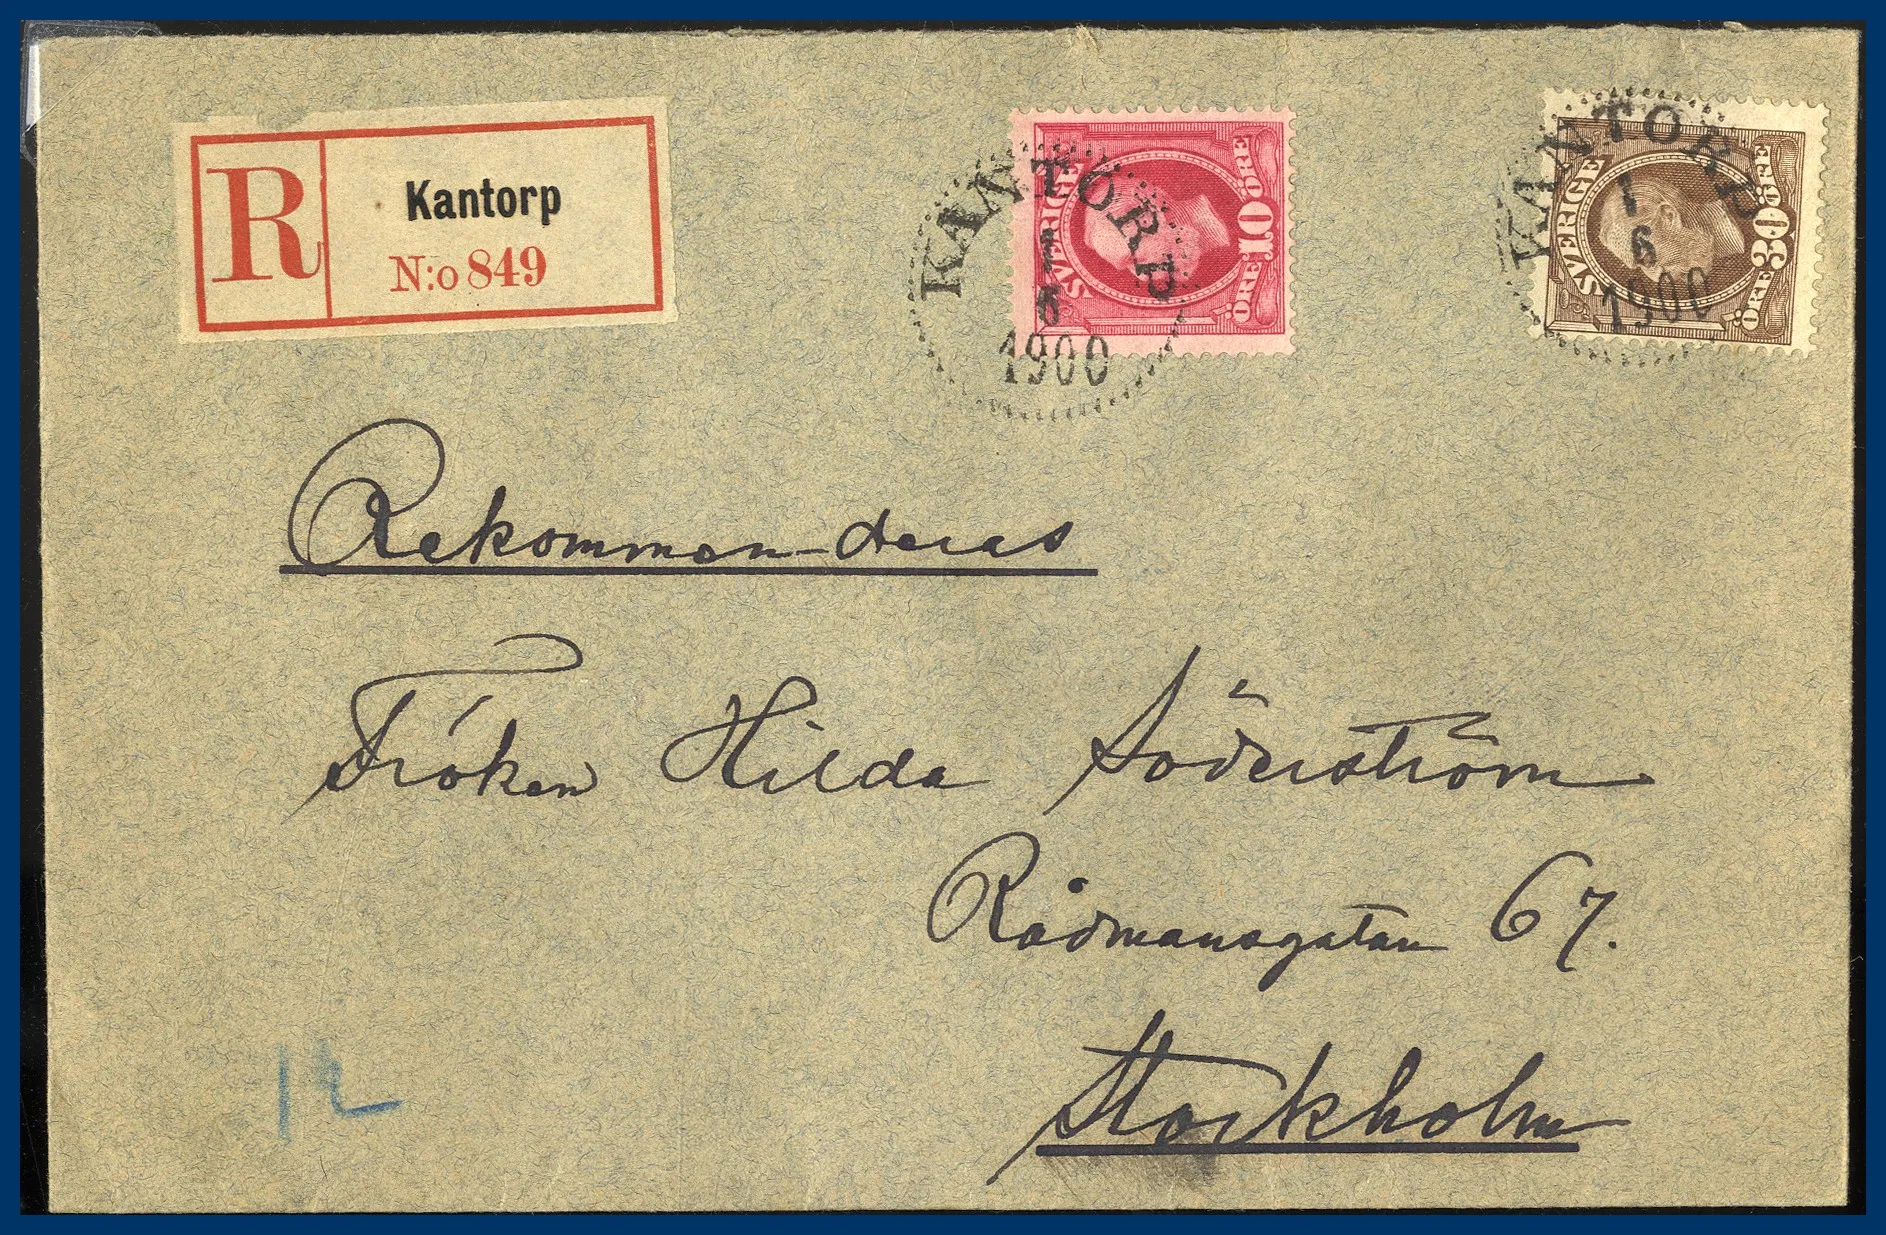 R
Kantorp
N:o 849
SVERIGE
ÖRE 10 ÖRE
KANTORP
1
6
1900
SVERIGE
ÖRE 30 ÖRE
KANTORP
1
6
1900
Rekommanderas
Fröken Hilda Söderström
Rådmansgatan 67.
Stockholm
12